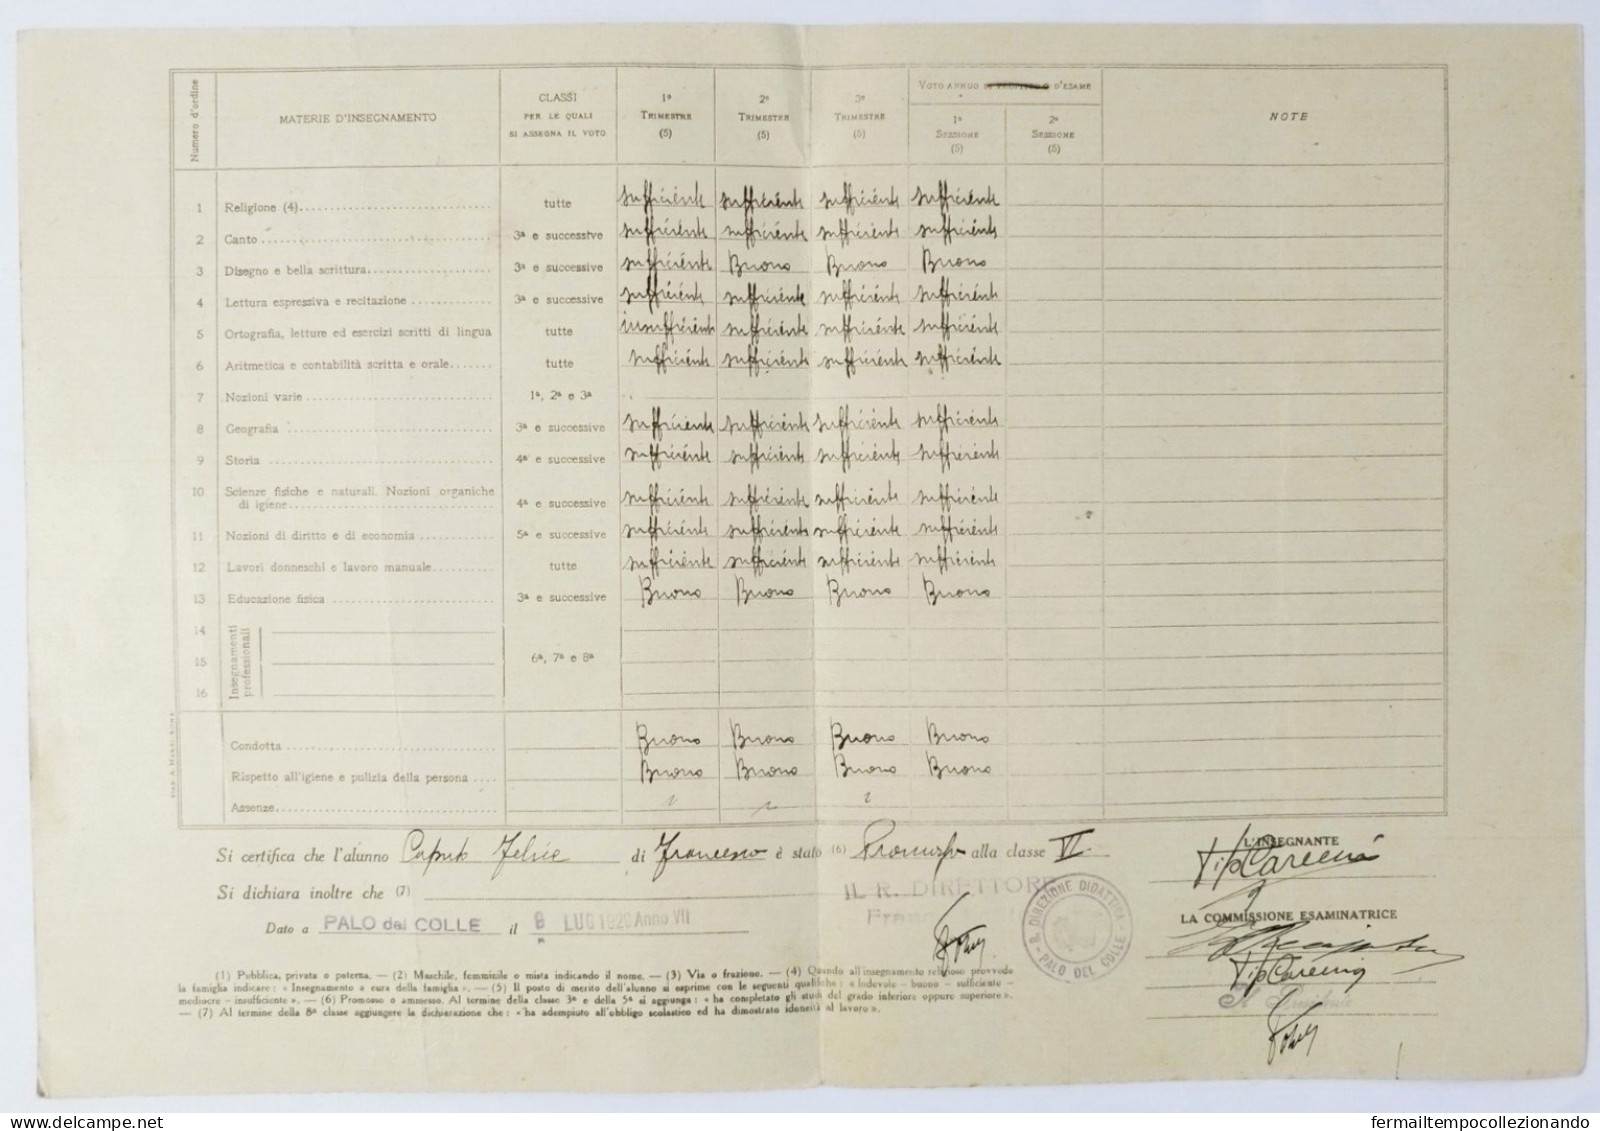 Numero d'ordine
MATERIE D'INSEGNAMENTO
CLASSI
PER LE QUALI
SI ASSEGNA IL VOTO
1º
TRIMESTRE
(5)
2º
TRIMESTRE
(5)
3º
TRIMESTRE
(5)
VOTO ANNUO D'ESAME
1ª
SESSIONE
(5)
2ª
SESSIONE
(5)
NOTE
1 Religione (4) tutte sufficiente sufficiente sufficiente sufficiente
2 Canto 3ª e successive sufficiente sufficiente sufficiente sufficiente
3 Disegno e bella scrittura 3ª e successive sufficiente Buono Buono Buono
4 Lettura espressiva e recitazione 3ª e successive sufficiente sufficiente sufficiente sufficiente
5 Ortografia, letture ed esercizi scritti di lingua tutte insufficiente sufficiente sufficiente sufficiente
6 Aritmetica e contabilità scritta e orale tutte sufficiente sufficiente sufficiente sufficiente
7 Nozioni varie 1ª, 2ª e 3ª
8 Geografia 3ª e successive sufficiente sufficiente sufficiente sufficiente
9 Storia 4ª e successive sufficiente sufficiente sufficiente sufficiente
10 Scienze fisiche e naturali. Nozioni organiche
di igiene 4ª e successive sufficiente sufficiente sufficiente sufficiente
11 Nozioni di diritto e di economia 5ª e successive sufficiente sufficiente sufficiente sufficiente
12 Lavori donneschi e lavoro manuale tutte sufficiente sufficiente sufficiente sufficiente
13 Educazione fisica 3ª e successive Buono Buono Buono Buono
14
15 6ª, 7ª e 8ª
16
Insegnamenti
professionali
Condotta Buono Buono Buono Buono
Rispetto all'igiene e pulizia della persona Buono Buono Buono Buono
Assenze
Si certifica che l'alunno Caputo Felice di Francesco è stato (6) Promosso alla classe VI.
L'INSEGNANTE
Si dichiara inoltre che (7)
IL R. DIRETTORE
R. DIREZIONE DIDATTICA - PALO DEL COLLE -
LA COMMISSIONE ESAMINATRICE
Dato a PALO del COLLE il 8 LUG 1929 Anno VII
(1) Pubblica, privata o paterna. — (2) Maschile, femminile o mista indicando il nome. — (3) Via o frazione. — (4) Quando all'insegnamento religioso provvede
la famiglia indicare: « Insegnamento a cura della famiglia ». — (5) Il posto di merito dell'alunno si esprime con le seguenti qualifiche: « lodevole - buono - sufficiente -
mediocre - insufficiente ». — (6) Promosso o ammesso. Al termine della classe 3ª e della 5ª si aggiunga: « ha completato gli studi del grado inferiore oppure superiore ».
— (7) Al termine della 8ª classe aggiungere la dichiarazione che: « ha adempiuto all'obbligo scolastico ed ha dimostrato idoneità al lavoro ».
delcampe.net
fermailtempocollezionando